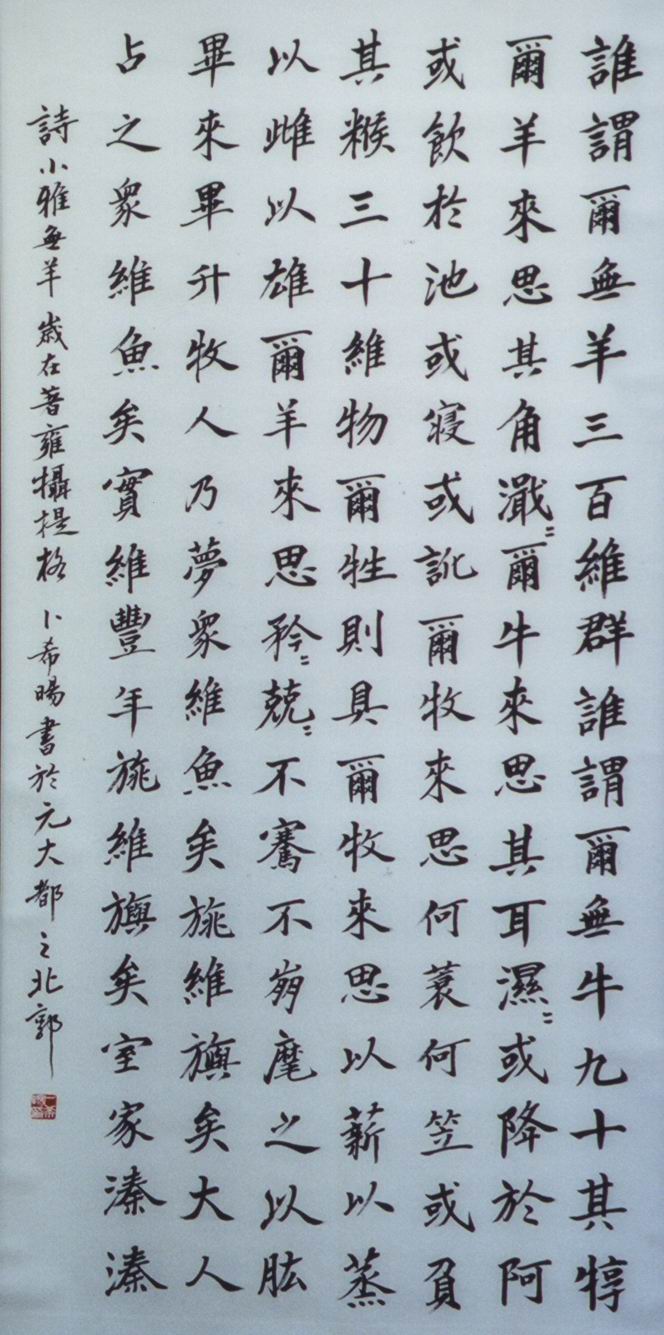 誰謂爾無羊三百維群誰謂爾無牛九十其犉
爾羊來思其角濈〃爾牛來思其耳濕〃或降於阿
或飲於池或寢或訛爾牧來思何蓑何笠或負
其糇三十維物爾牲則具爾牧來思以薪以蒸
以雌以雄爾羊來思矜〃兢〃不騫不崩麾之以肱
畢來畢升牧人乃夢眾維魚矣旐維旟矣大人
占之眾維魚矣實維豐年旐維旟矣室家溱溱
詩小雅無羊 歲在著雍攝提格 卜希暘書於元大都之北郭